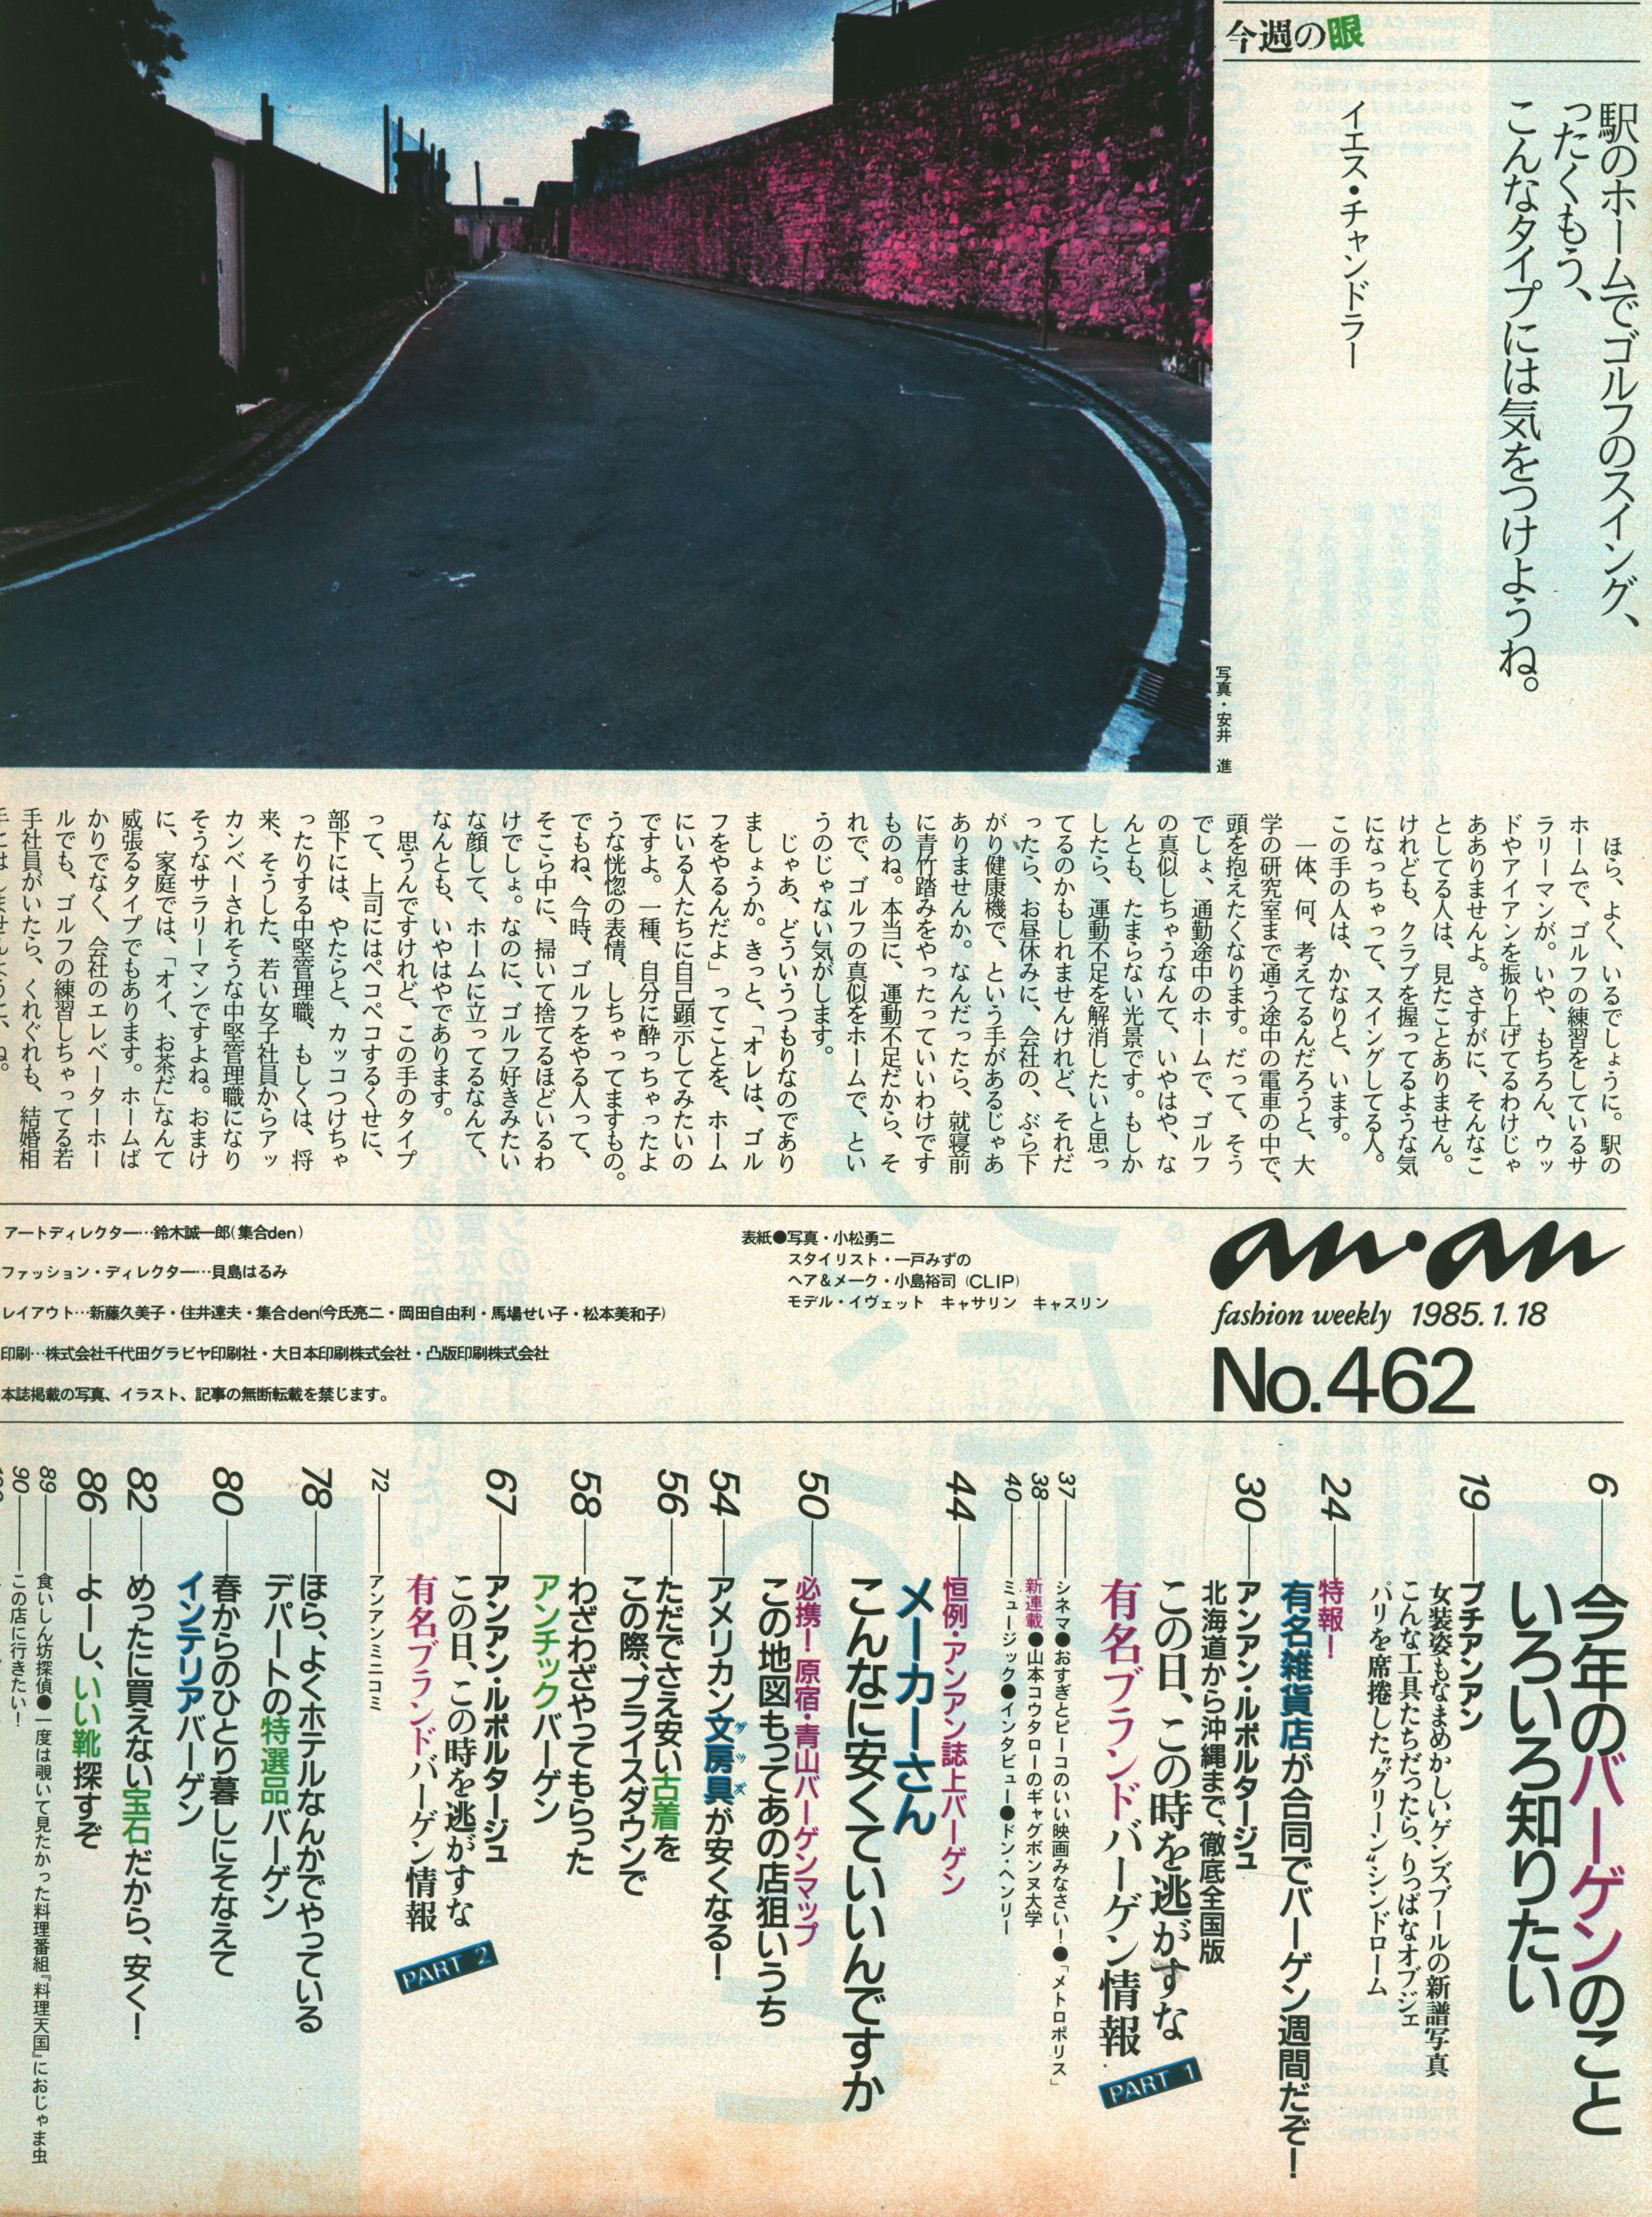 今週の眼
駅のホームでゴルフのスイング、
ったくもう、
こんなタイプには気をつけようね。
イエス・チャンドラー
写真・安井 進
ほら、よく、いるでしょうに。駅の
ホームで、ゴルフの練習をしているサ
ラリーマンが。いや、もちろん、ウッ
ドやアイアンを振り上げてるわけじゃ
ありませんよ。さすがに、そんなこ
としてる人は、見たことありません。
けれども、クラブを握ってるような気
になっちゃって、スイングしてる人。
この手の人は、かなりと、います。
一体、何、考えてるんだろうと、大
学の研究室まで通う途中の電車の中で、
頭を抱えたくなります。だって、そう
でしょ、通勤途中のホームで、ゴルフ
の真似しちゃうなんて、いやはや、な
んとも、たまらない光景です。もしか
したら、運動不足を解消したいと思っ
てるのかもしれませんけれど、それだ
ったら、お昼休みに、会社の、ぶら下
がり健康機で、という手があるじゃあ
ありませんか。なんだったら、就寝前
に青竹踏みをやったっていいわけです
ものね。本当に、運動不足だから、そ
れで、ゴルフの真似をホームで、とい
うのじゃない気がします。
じゃあ、どういうつもりなのであり
ましょうか。きっと、「オレは、ゴル
フをやるんだよ」ってことを、ホーム
にいる人たちに自己顕示してみたいの
ですよ。一種、自分に酔っちゃったよ
うな恍惚の表情、しちゃってますもの。
でもね、今時、ゴルフをやる人って、
そこら中に、掃いて捨てるほどいるわ
けでしょ。なのに、ゴルフ好きみたい
な顔して、ホームに立ってるなんて、
なんとも、いやはやであります。
思うんですけれど、この手のタイプ
って、上司にはペコペコするくせに、
部下には、やたらと、カッコつけちゃ
ったりする中堅管理職、もしくは、将
来、そうした、若い女子社員からアッ
カンベーされそうな中堅管理職になり
そうなサラリーマンですよね。おまけ
に、家庭では、「オイ、お茶だ」なんて
威張るタイプでもあります。ホームば
かりでなく、会社のエレベーターホー
ルでも、ゴルフの練習しちゃってる若
手社員がいたら、くれぐれも、結婚相
手にはしませんように、ね。
an・an
fashion weekly 1985.1.18
No.462
表紙●写真・小松勇二
スタイリスト・一戸みずの
ヘア&メーク・小島裕司(CLIP)
モデル・イヴェット キャサリン キャスリン
アートディレクター…鈴木誠一郎(集合den)
ファッション・ディレクター…貝島はるみ
レイアウト…新藤久美子・住井達夫・集合den(今氏亮二・岡田自由利・馬場せい子・松本美和子)
印刷…株式会社千代田グラビヤ印刷社・大日本印刷株式会社・凸版印刷株式会社
本誌掲載の写真、イラスト、記事の無断転載を禁じます。
6―今年のバーゲンのこと
いろいろ知りたい
19―プチアンアン
女装姿もなまめかしいゲンズブールの新譜写真
こんな工具たちだったら、りっぱなオブジェ
パリを席捲した"グリーン"シンドローム
24―特報!
有名雑貨店が合同でバーゲン週間だぞ!
30―アンアン・ルポルタージュ
北海道から沖縄まで、徹底全国版
この日、この時を逃がすな
有名ブランドバーゲン情報
PART 1
37―シネマ●おすぎとピーコのいい映画みなさい!●「メトロポリス」
38―新連載●山本コウタローのギャグボンヌ大学
40―ミュージック●インタビュー●ドン・ヘンリー
44―恒例・アンアン誌上バーゲン
メーカーさん
こんなに安くていいんですか
50―必携!原宿・青山バーゲンマップ
この地図もってあの店狙いうち
54―アメリカン文房具が安くなる!
グッズ
56―ただでさえ安い古着を
この際、プライスダウンで
58―わざわざやってもらった
アンチックバーゲン
67―アンアン・ルポルタージュ
この日、この時を逃がすな
有名ブランドバーゲン情報
PART 2
72―アンアンミニコミ
78―ほら、よくホテルなんかでやっている
デパートの特選品バーゲン
80―春からのひとり暮しにそなえて
インテリアバーゲン
82―めったに買えない宝石だから、安く!
86―よーし、いい靴探すぞ
89―食いしん坊探偵●一度は覗いて見たかった料理番組『料理天国』におじゃま虫
90―この店に行きたい!